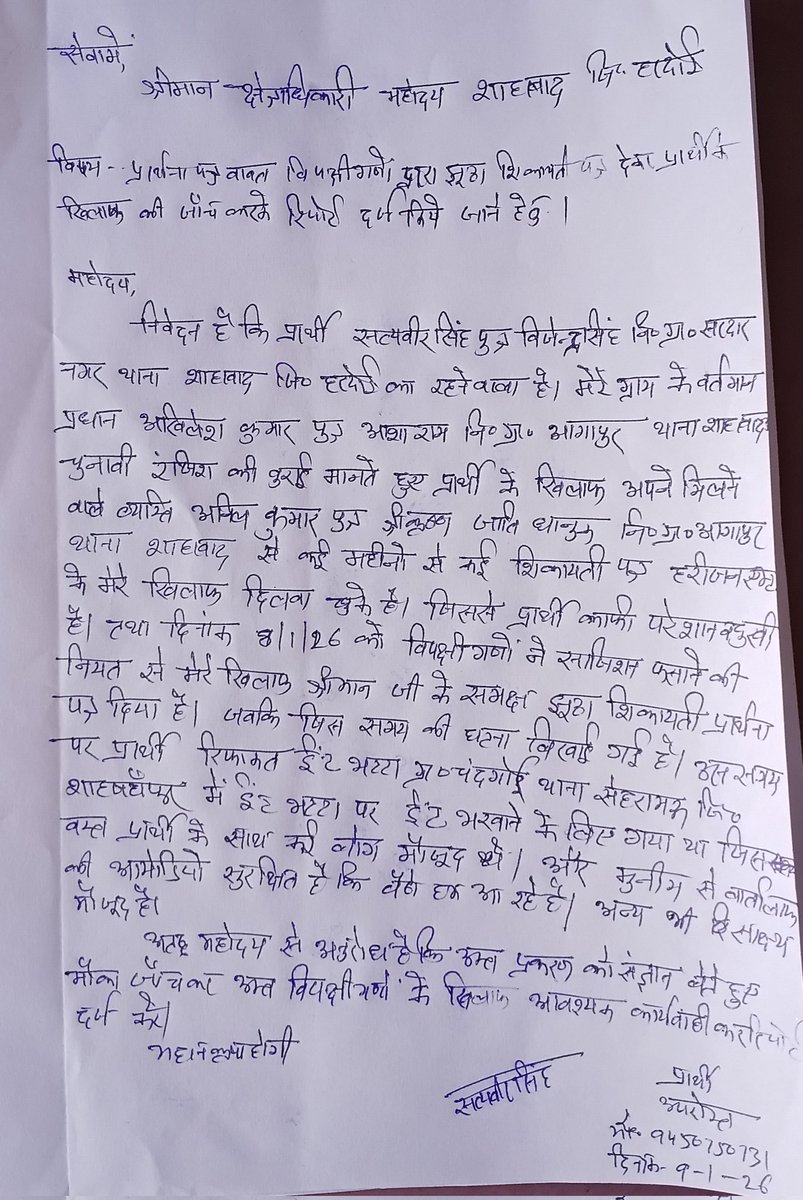 सेवामें,
श्रीमान क्षेत्राधिकारी महोदय शाहाबाद जि. हरदोई
विषय - प्रार्थना पत्र बावत विपक्षीगणों द्वारा झूठा शिकायती पत्र देकर प्रार्थी के
खिलाफ की जाँच करके रिपोर्ट दर्ज किये जाने हेतु ।
महोदय,
निवेदन है कि प्रार्थी सत्यवीर सिंह पुत्र विजेन्द्र सिंह नि० ग्रा० सरदार
नगर थाना शाहाबाद जि० हरदोई का रहने वाला है। मेरे ग्राम के वर्तमान
प्रधान अखिलेश कुमार पुत्र आशाराम नि० ग्रा० आगापुर थाना शाहाबाद
चुनावी रंजिश की बुराई मानते हुए प्रार्थी के खिलाफ अपने मिलने
वाले व्यक्ति अनिल कुमार पुत्र श्रीकृष्ण जाति धानुक नि० ग्रा० आगापुर
थाना शाहाबाद से कई महीनो से कई शिकायती पत्र हरीजन एक्ट
के मेरे खिलाफ दिलवा चुके है। जिससे प्रार्थी काफी परेशान व दुखी
है। तथा दिनांक 8/1/26 को विपक्षीगणों ने साजिशन फसाने की
नियत से मेरे खिलाफ श्रीमान जी के समक्ष झूठा शिकायती प्रार्थना
पत्र दिया है। जबकि जिस समय की घटना लिखाई गई है। उस समय
पर प्रार्थी रिफाकत ईंट भट्टा ग्रा० चंदगोई थाना सेहरामऊ जि०
शाहजहाँपुर में ईंट भट्टा पर ईंट भरवाने के लिए गया था जिस
वक्त प्रार्थी के साथ कई लोग मौजूद थे। और मुनीम से वार्तालाप
की आडियो सुरक्षित है कि बैठो हम आ रहे है। अन्य भी साक्ष्य
मौजूद है।
अतः महोदय से अनुरोध है कि उक्त प्रकरण को संज्ञान लेते हुए
मौका जाँच कर उक्त विपक्षीगणों के खिलाफ आवश्यक कार्यवाही कर रिपोर्ट
दर्ज करें।
महान कृपा होगी
सत्यवीर सिंह
प्रार्थी
उपरोक्त
मो० 9450750731
दिनांक- 9-1-26